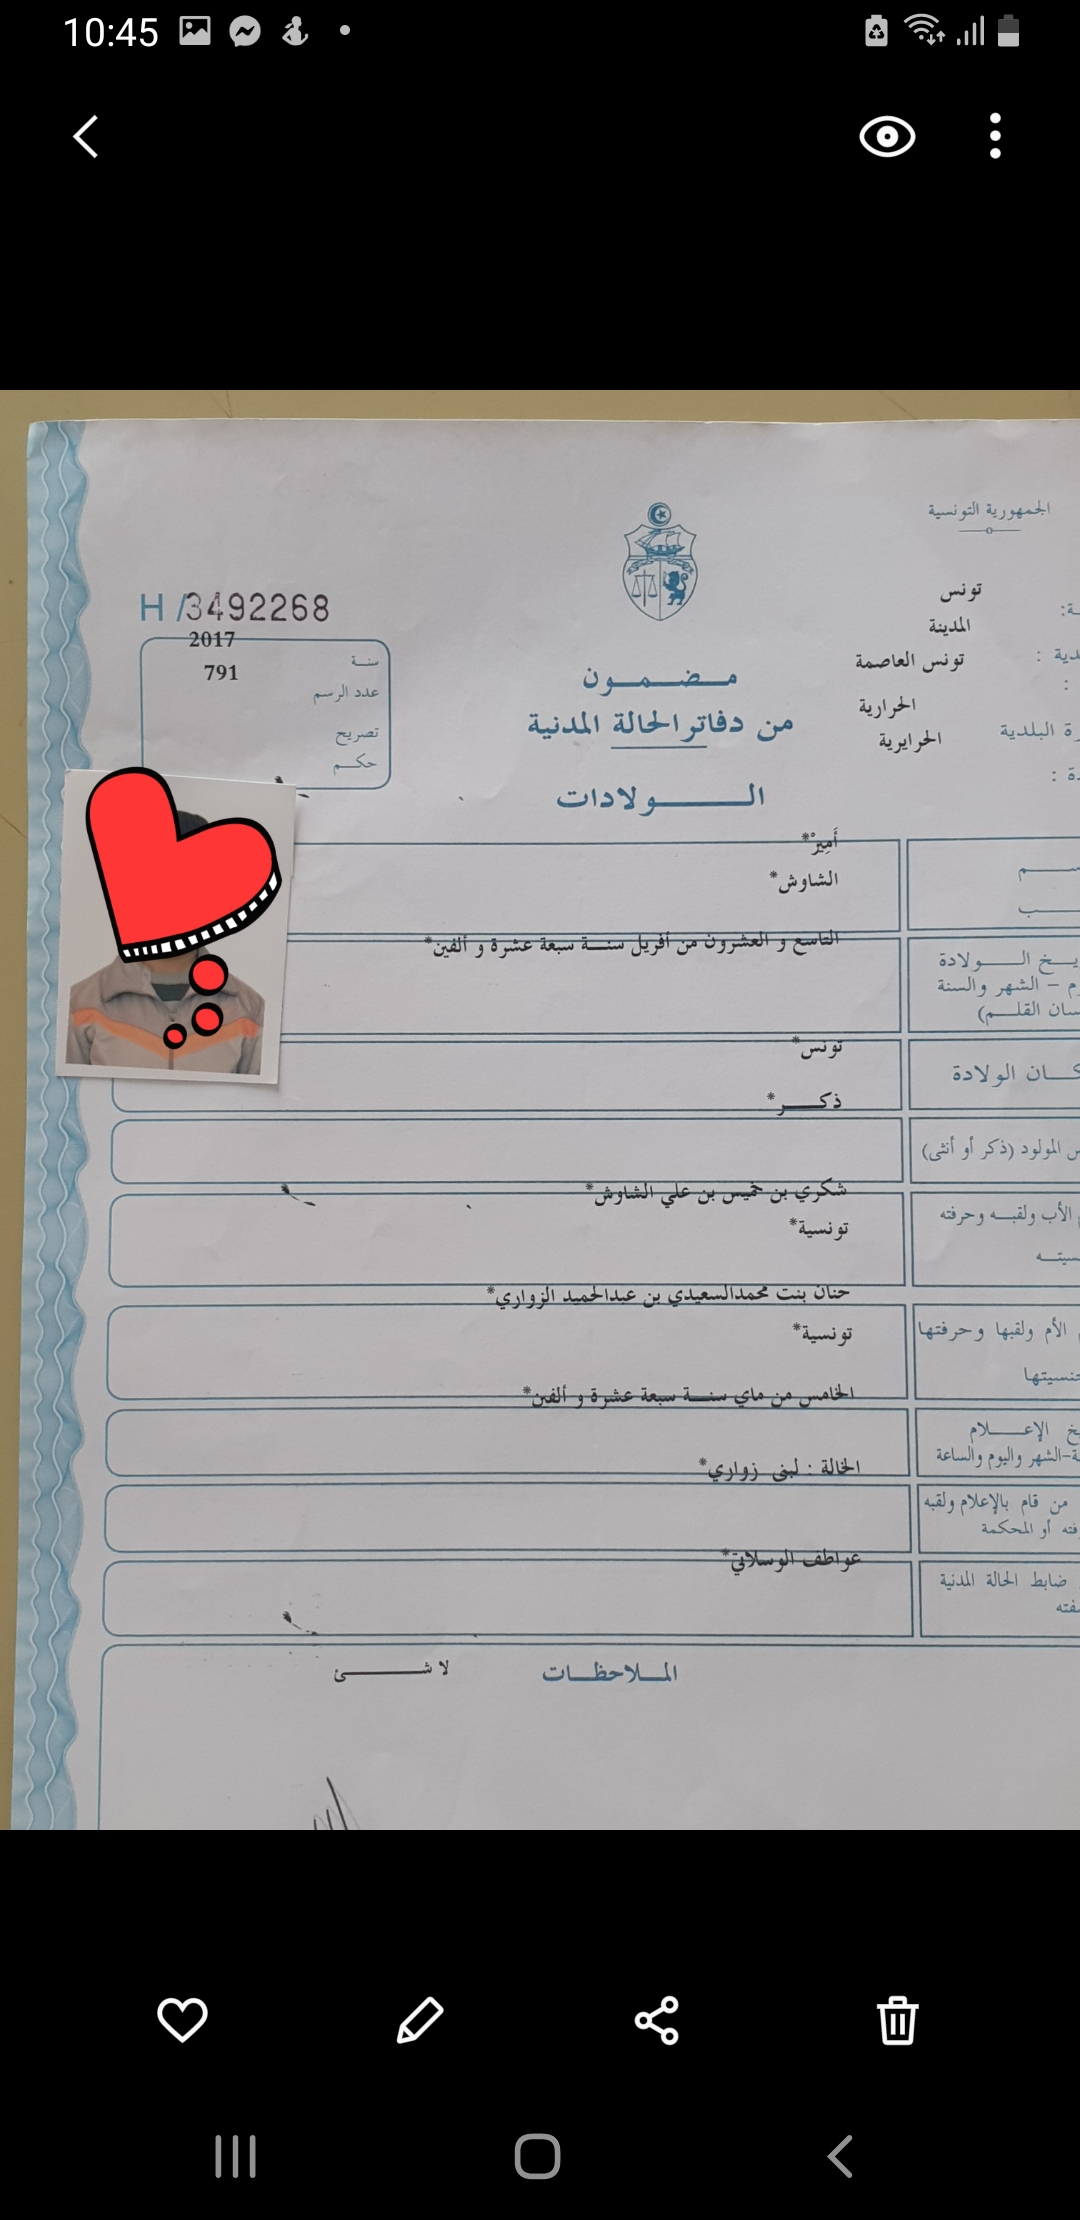 10:45
الجمهورية التونسية
تونس
المدينة
تونس العاصمة
الحرارية
رة البلدية
الحرايرية
H /3492268
2017
سنة
791
عدد الرسم
تصريح
حكم
مضمون
من دفاتر الحالة المدنية
الولادات
أَمِيرْ*
الشاوش*
التاسع و العشرون من أفريل سنة سبعة عشرة و ألفين*
يخ الولادة
م – الشهر والسنة
سان القلم)
تونس*
كان الولادة
ذكر*
س المولود (ذكر أو أنثى)
شكري بن خميس بن علي الشاوش*
الأب ولقبه وحرفته
تونسية*
سيته
حنان بنت محمدالسعيدي بن عبدالحميد الزواري*
الأم ولقبها وحرفتها
تونسية*
نسيتها
الخامس من ماي سنة سبعة عشرة و ألفين*
خ الإعلام
ة-الشهر واليوم والساعة
الخالة : لبنى زواري*
من قام بالإعلام ولقبه
فته أو المحكمة
عواطف الوسلاتي*
ضابط الحالة المدنية
فته
الملاحظات
لا شئ